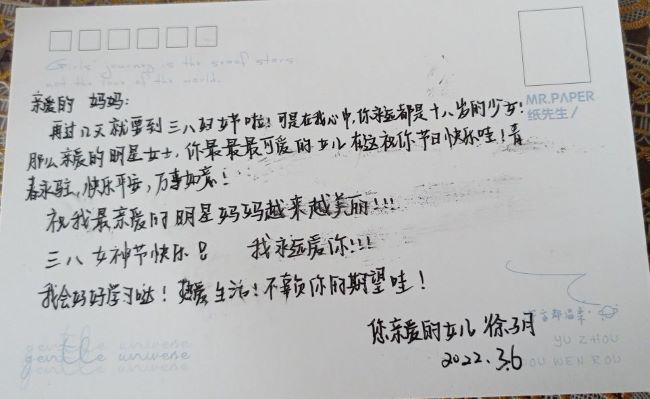 Girls' journey is the sea of stars
not the love of the world.
MR.PAPER
纸先生/
亲爱的 妈妈：
再过几天就要到三八妇女节啦！可是在我心中，你永远都是十八岁的少女！
那么亲爱的明星女士，你最最最可爱的女儿在这祝你节日快乐哇！青
春永驻，快乐平安，万事如意！
祝我最亲爱的明星妈妈越来越美丽!!!
三八女神节快乐！ 我永远爱你!!!
我会好好学习哒！热爱生活！不辜负你的期望哇！
你亲爱的女儿 徐
2022.3.6
宇宙都温柔
YU ZHOU
DOU WEN ROU
gentle universe
gentle universe
gentle universe